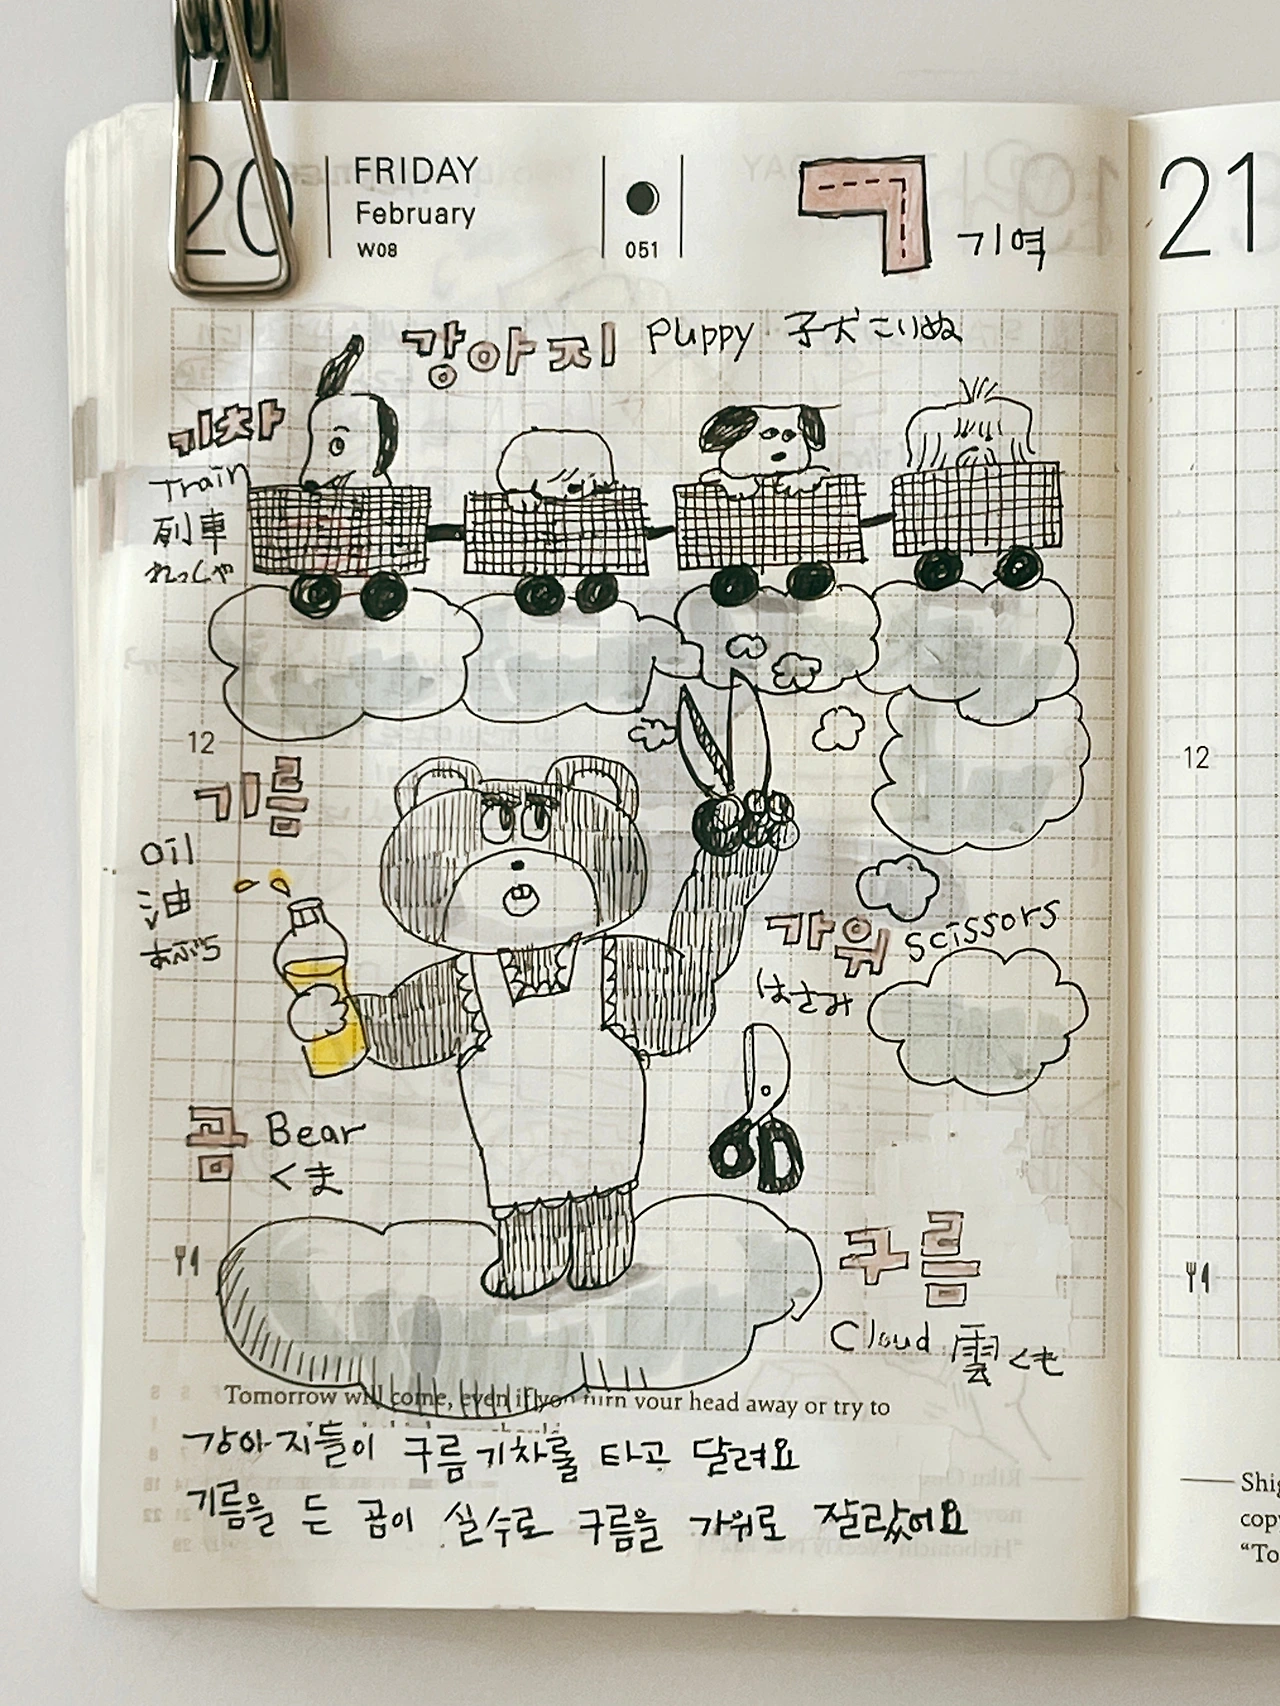 20
FRIDAY
February
W08
051
ㄱ 기역
21
강아지 Puppy 子犬 こいぬ
기차
Train
列車
れっしゃ
12
12
기름
Oil
油
あぶら
가위 Scissors
はさみ
곰 Bear
くま
구름
Cloud 雲 くも
Tomorrow will come, even if you turn your head away or try to
강아지들이 구름기차를 타고 달려요
기름을 든 곰이 실수로 구름을 가위로 잘랐어요
Shig
copy
“To